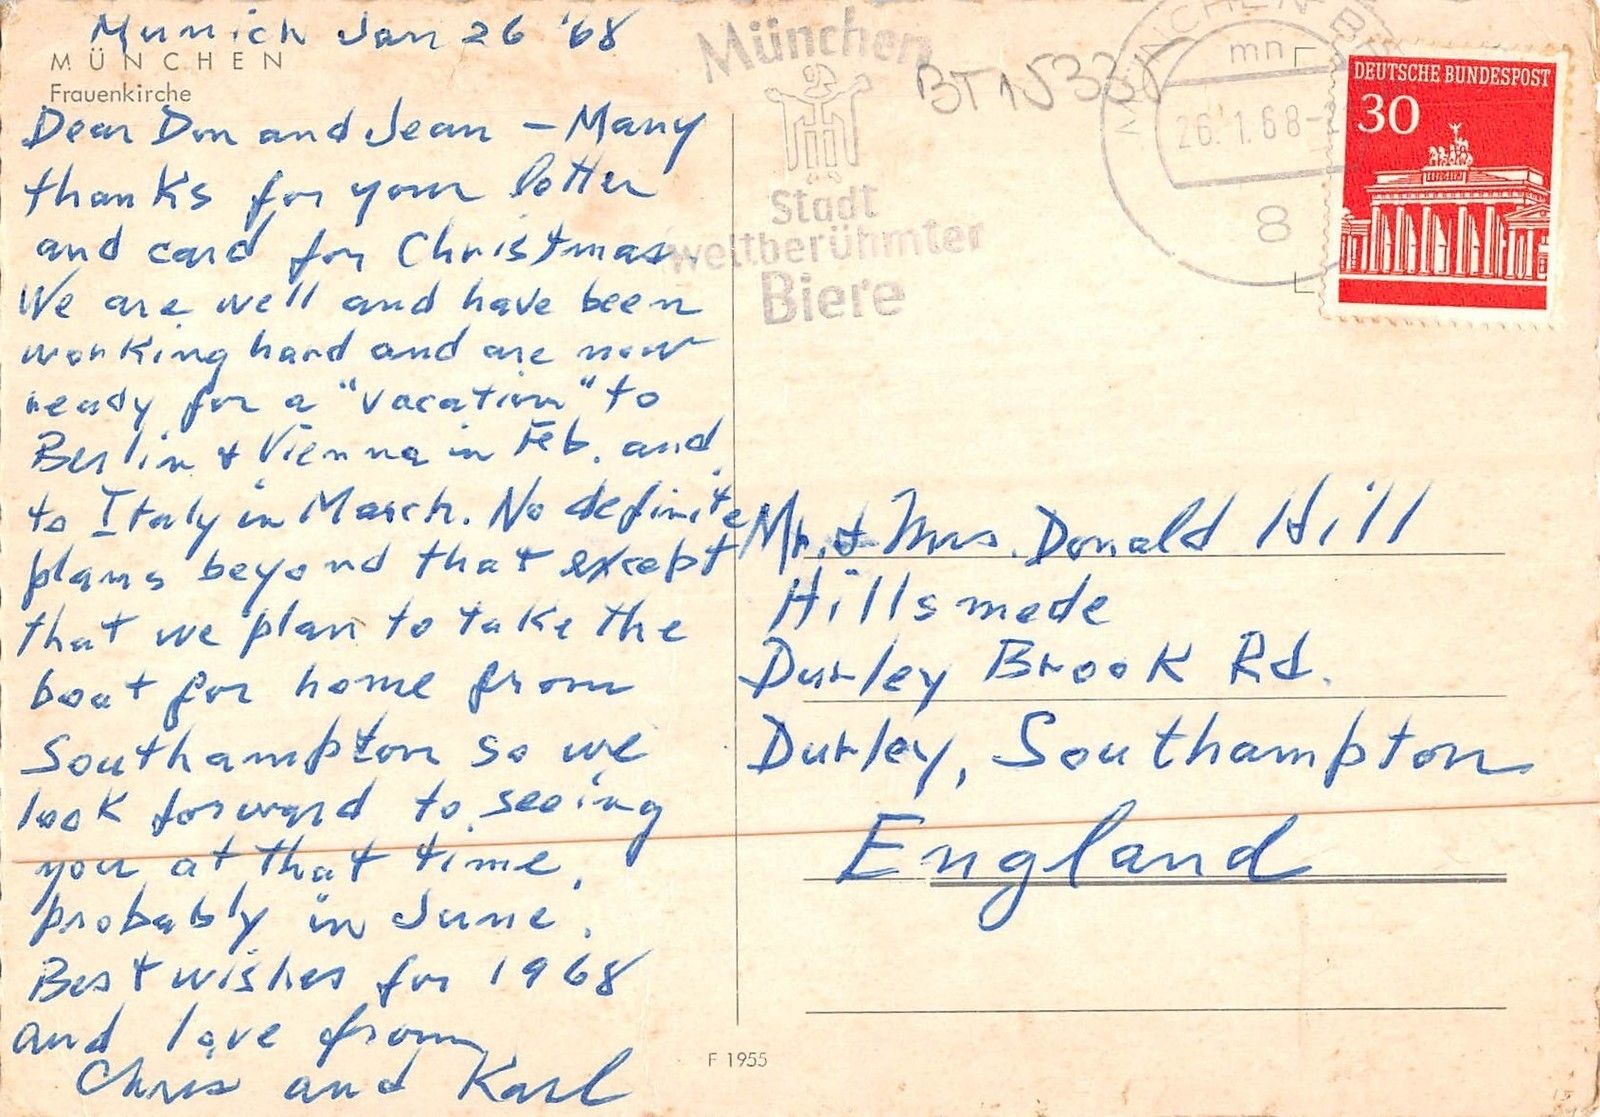 Munich Jan 26 '68
MÜNCHEN
Frauenkirche
Dear Don and Jean – Many
thanks for your letter
and card for Christmas.
We are well and have been
working hard and are now
ready for a "vacation" to
Berlin & Vienna in Feb. and
to Italy in March. No definite
plans beyond that except
that we plan to take the
boat for home from
Southampton so we
look forward to seeing
you at that time,
probably in June.
Best wishes for 1968
and love from
Chris and Karl
München
Stadt
weltberühmter
Biere
BT 15331
MÜNCHEN BP
mn
26.1.68-
8
DEUTSCHE BUNDESPOST
30
Mr. & Mrs. Donald Hill
Hillsmede
Durley Brook Rd.
Durley, Southampton
England
F 1955